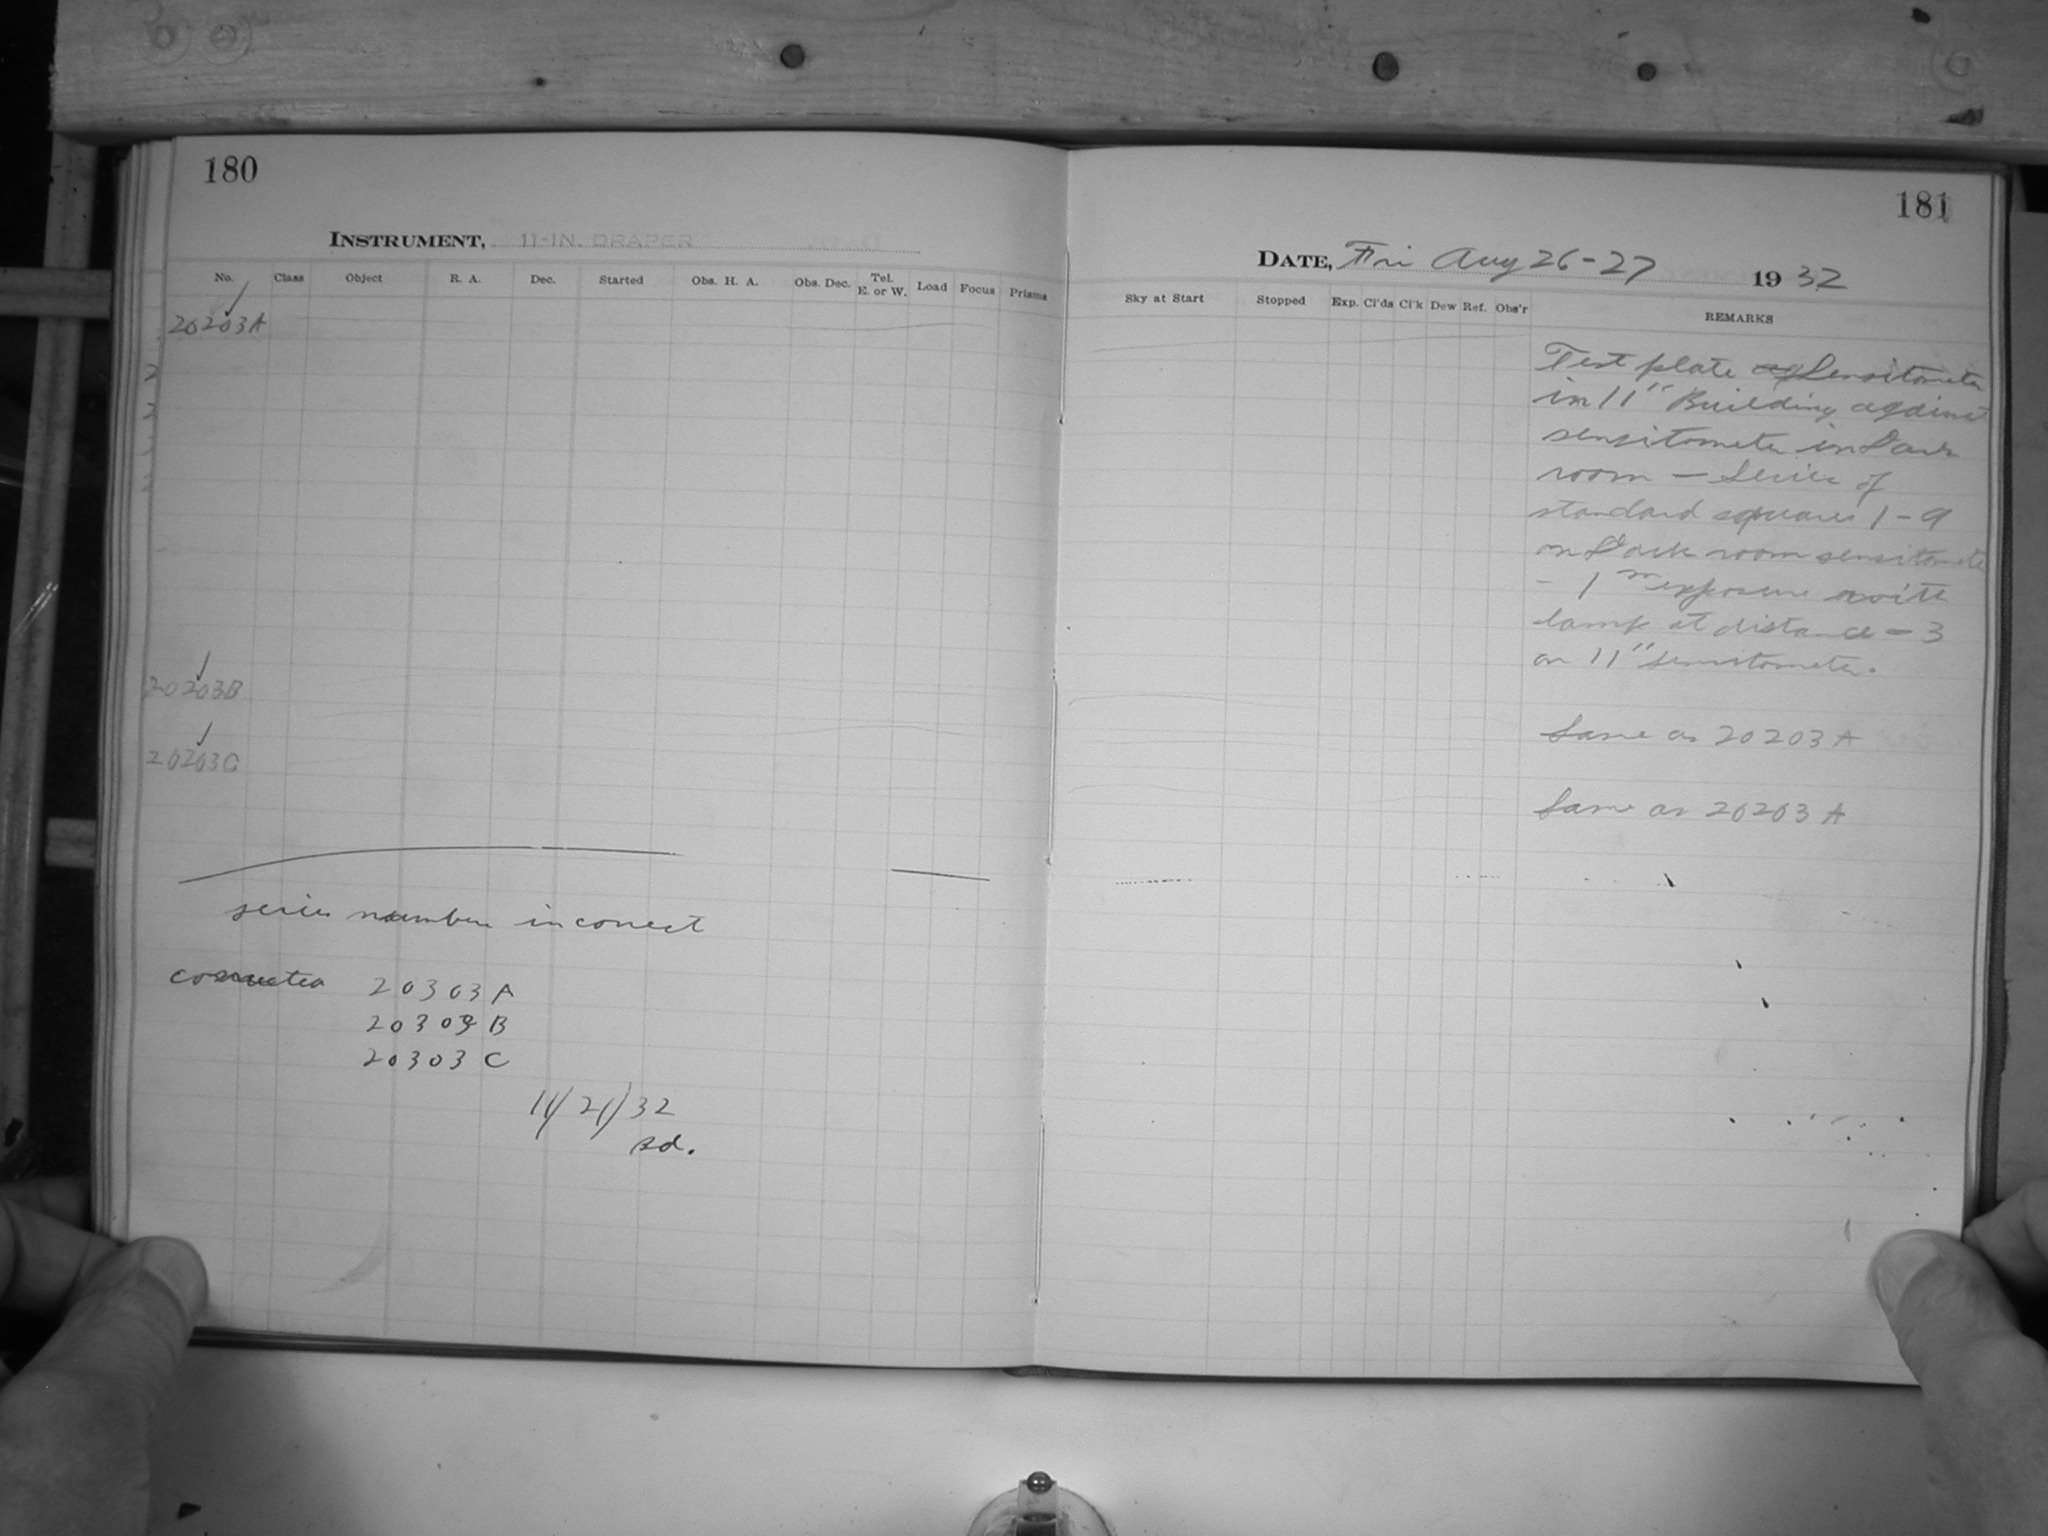 180
INSTRUMENT, 11-IN. DRAPER
No. Class Object R. A. Dec. Started Obs. H. A. Obs. Dec. Tel. E. or W. Load Focus Prisms
20203A
20203B
20203C
series number incorrect
corrected 20303A
20303B
20303C
11/21/32
181
DATE, Fri Aug 26-27 1932
Sky at Start Stopped Exp. Cl'ds Cl'k Dew Ref. Obs'r REMARKS
Test plate Sensitometer
in 11" Building against
sensitometer in Dark
room — Series of
standard squares 1-9
on Dark room sensitometer
- 1m exposure with
lamp at distance - 3
on 11" sensitometer.
Same as 20203A
Same as 20203A